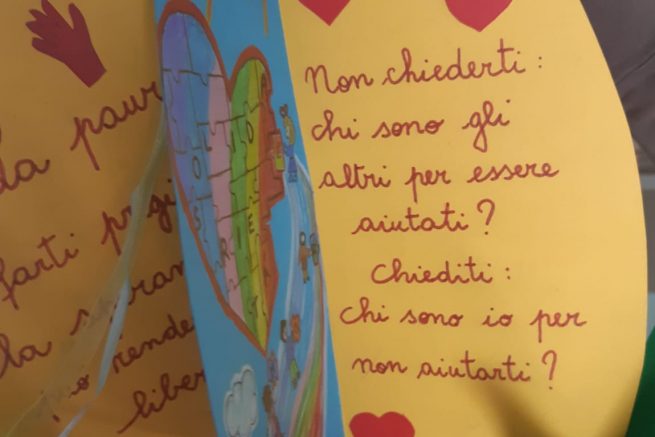 la paur
farti prigi
la
rende
liber
Non chiederti:
chi sono gli
altri per essere
aiutati?
Chiediti:
chi sono io per
non aiutarti?